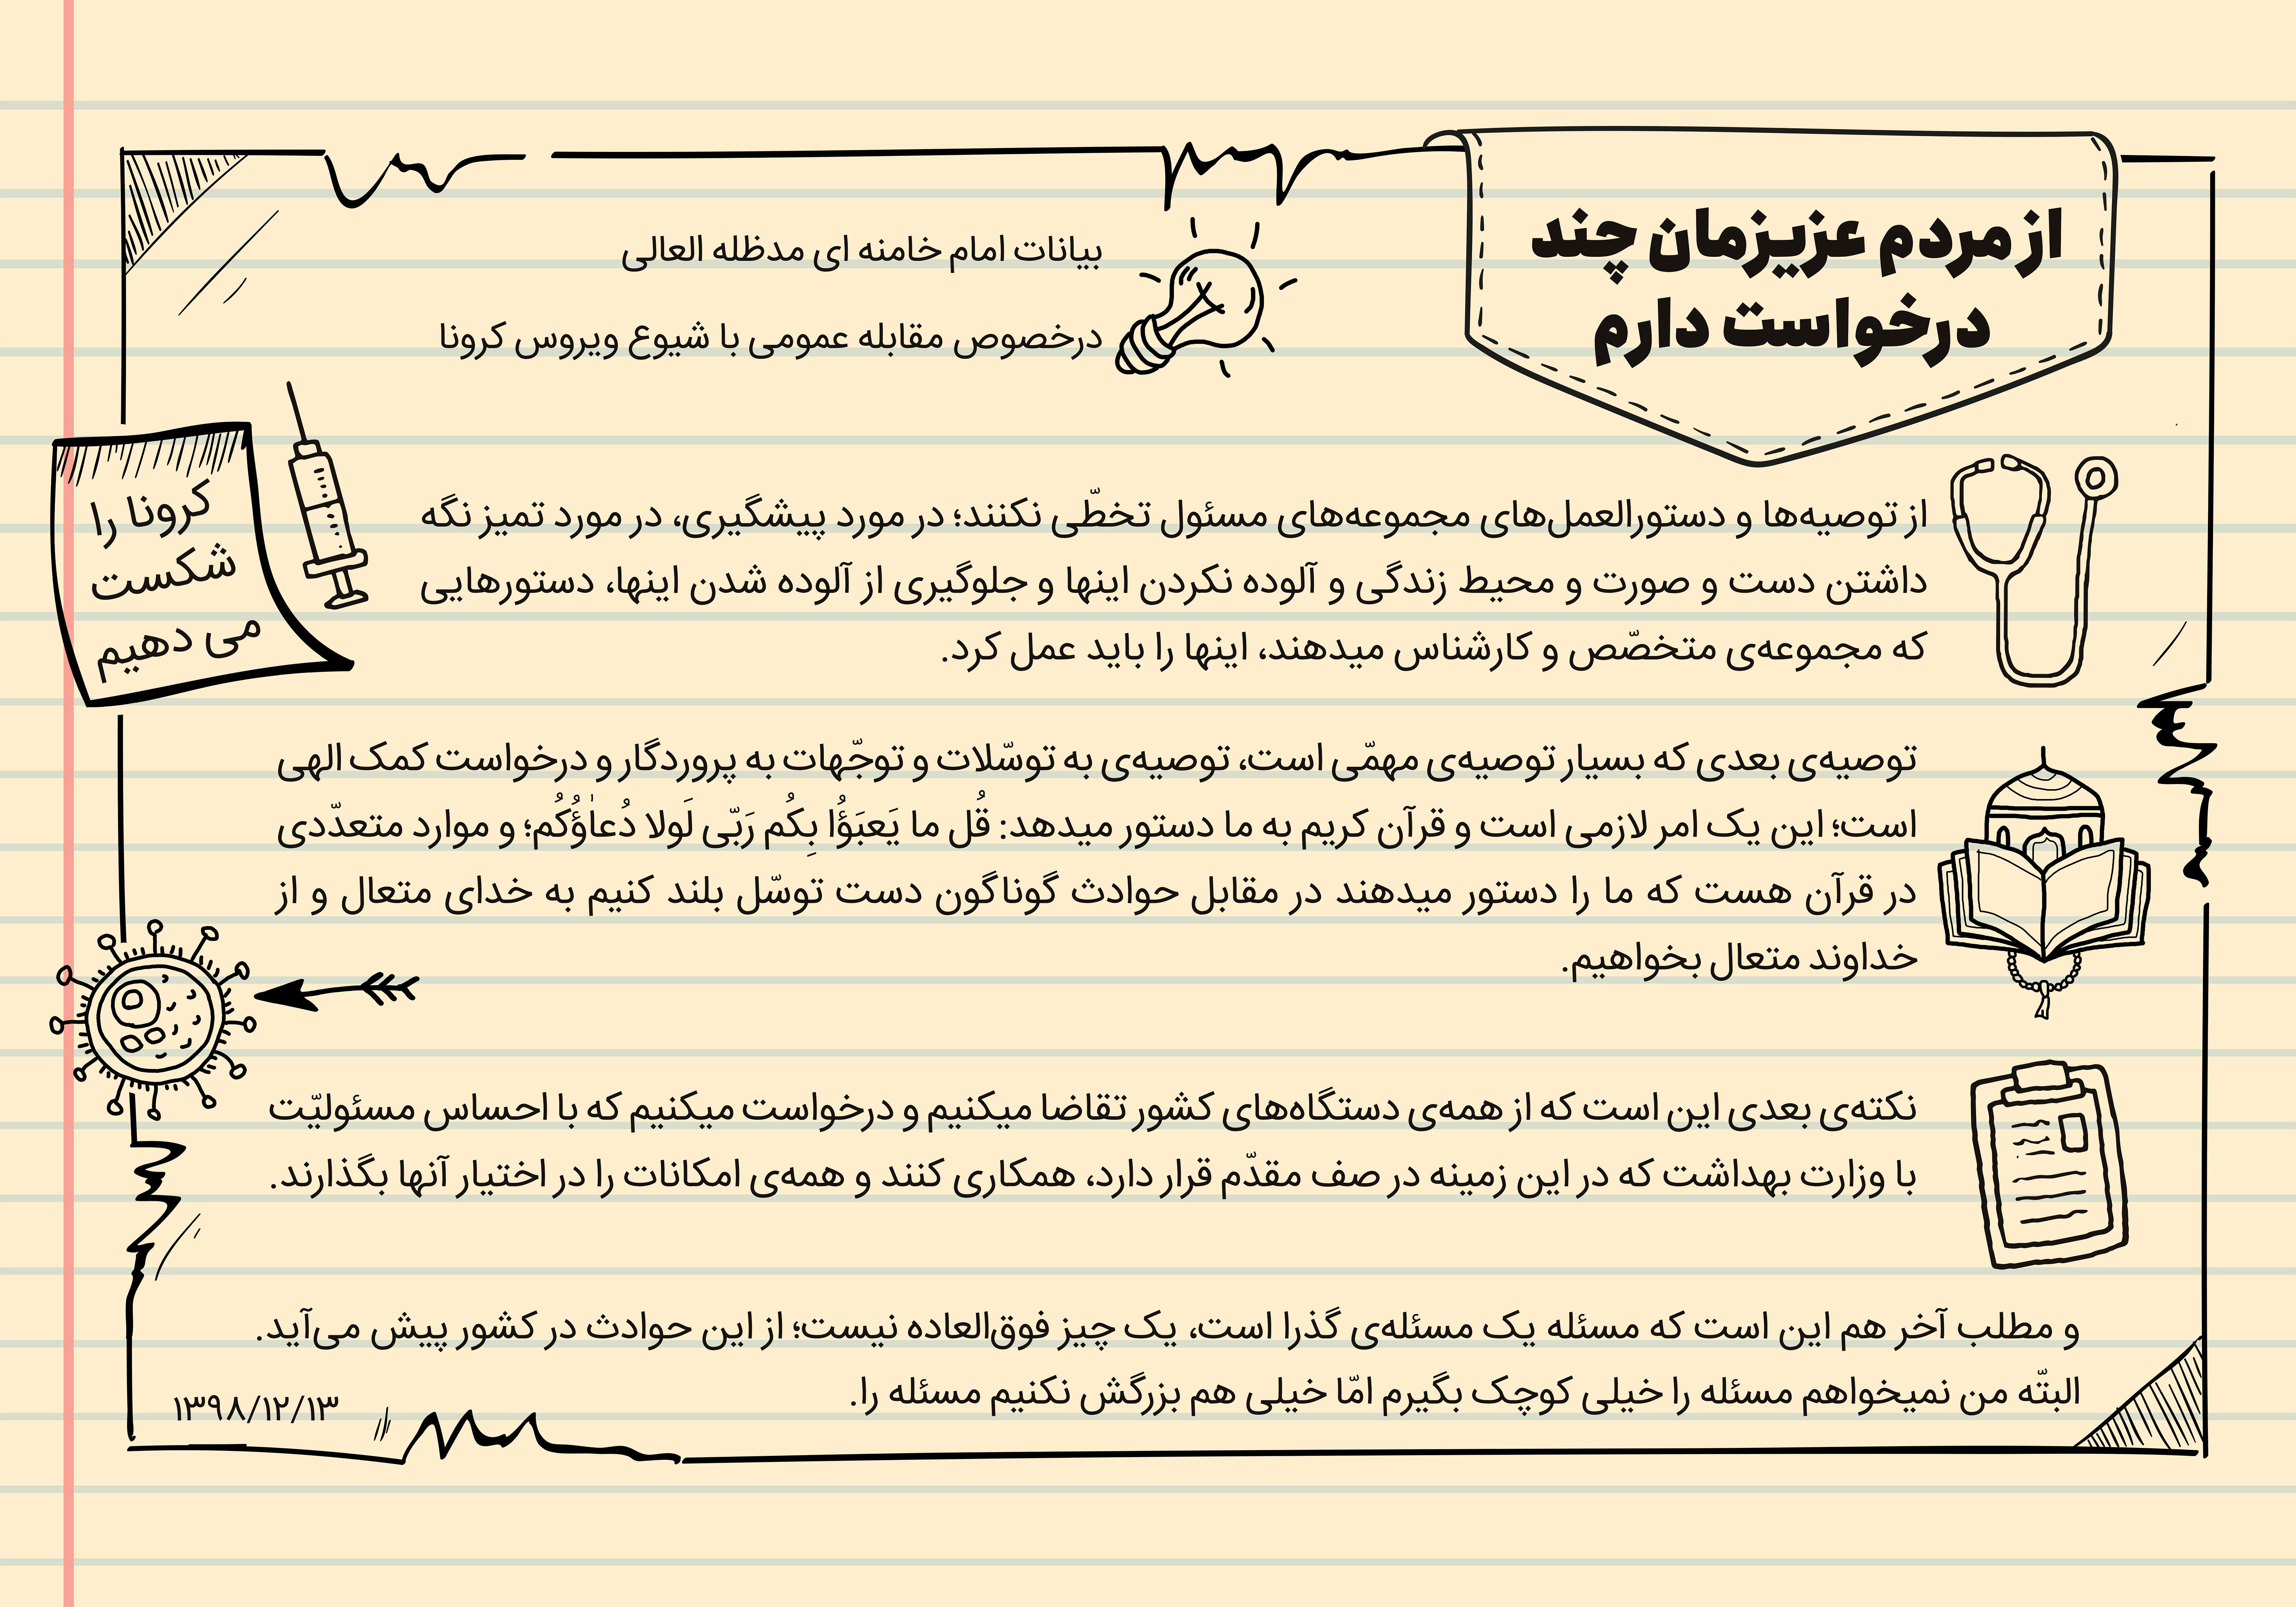 از مردم عزیزمان چند
درخواست دارم
بیانات امام خامنه ای مدظله العالی
درخصوص مقابله عمومی با شیوع ویروس کرونا
کرونا را
شکست
می دهیم
از توصیه‌ها و دستورالعمل‌های مجموعه‌های مسئول تخطّی نکنند؛ در مورد پیشگیری، در مورد تمیز نگه
داشتن دست و صورت و محیط زندگی و آلوده نکردن اینها و جلوگیری از آلوده شدن اینها، دستورهایی
که مجموعه‌ی متخصّص و کارشناس میدهند، اینها را باید عمل کرد.
توصیه‌ی بعدی که بسیار توصیه‌ی مهمّی است، توصیه‌ی به توسّلات و توجّهات به پروردگار و درخواست کمک الهی
است؛ این یک امر لازمی است و قرآن کریم به ما دستور میدهد: قُل ما یَعبَؤُا بِکُم رَبّی لَولا دُعاٰؤُکُم؛ و موارد متعدّدی
در قرآن هست که ما را دستور میدهند در مقابل حوادث گوناگون دست توسّل بلند کنیم به خدای متعال و از
خداوند متعال بخواهیم.
نکته‌ی بعدی این است که از همه‌ی دستگاه‌های کشور تقاضا میکنیم و درخواست میکنیم که با احساس مسئولیّت
با وزارت بهداشت که در این زمینه در صف مقدّم قرار دارد، همکاری کنند و همه‌ی امکانات را در اختیار آنها بگذارند.
و مطلب آخر هم این است که مسئله یک مسئله‌ی گذرا است، یک چیز فوق‌العاده نیست؛ از این حوادث در کشور پیش می‌آید.
البتّه من نمیخواهم مسئله را خیلی کوچک بگیرم امّا خیلی هم بزرگش نکنیم مسئله را.
۱۳۹۸/۱۲/۱۳